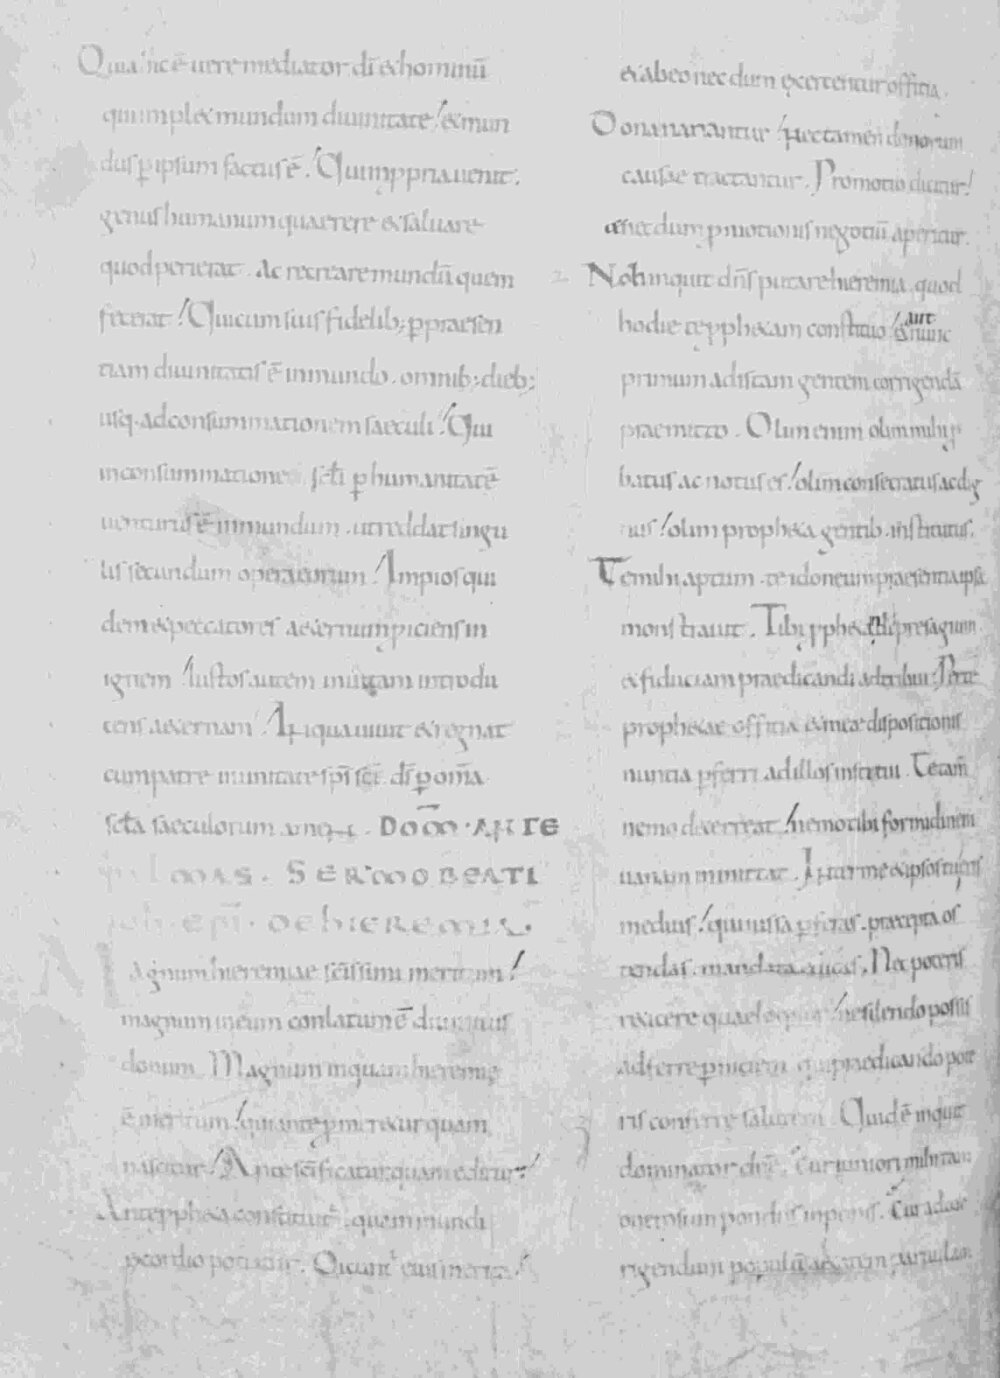 Quia hic ē uere mediator dī & hominū
qui implet mundum diuinitate! & mun
dus p ipsum factus ē! Qui in ppria uenit.
genus humanum quaerere & saluare
quod perierat. Ac recreare mundū quem
fecerat! Qui cum suis fidelib; p praesen
tiam diuinitatis ē in mundo. omnib; dieb;
usq. ad consummationem saeculi! Qui
in consummatione sclī p humanitatē
uenturus ē in mundum. ut reddat singu
lis secundum opera eorum! Impios qui
dem & peccatores aeternum piciens in
ignem! Iustos autem in uitam introdu
cens aeternam! In qua uiuit & regnat
cum patre in unitate sp̄s sc̄i. ds̄ p om̄a
scl̄a saeculorum amen. DOM̄. ANTE
SERMO BEATI
ioh. epī. DE HIEREMIA.
Magnum hieremiae sc̄issimi meritum!
magnum in eum conlatum ē diuinitus
donum. Magnum inquam hieremię
ē meritum! qui ante pmittitur quam
nascitur! Ante sc̄ificatur quam editur!
Ante ppheta constituitr̄. quem mundi
Dicunt̄
& ab eo necdum exercentur officia.
Dona narrantur! nec tamen donorum
causae tractantur. Promotio dicitur!
& necdum pmotionis negotiū aperitur.
Noli inquit dn̄s putare hieremia. quod
hodie te pphetam constituo! aut nunc
primum ad istam gentem corrigendā
praemitto. Olim enim olim mihi p
batus ac notus es! olim consecratus ac dig
nus! olim propheta gentib. institutus.
Te mihi aptum. te idoneum praesentia ipsa
monstrauit. Tibi ppheta presagium
& fiduciam praedicandi adtribui. Per te
prophetae officia & meae dispositionis
nuntia pferri ad illos institui. Te tam̄
nemo deterreat! nemo tibi formidinem
uanam inmittat. Inter me & ipsos tu es
medius! qui iussa pferas. praecepta os
tendas. mandata dicas. Nec poteris
reicere quae loquor! ne silendo possis
adferre pniciem qui praedicando pote
ris conferre salutem. Quid ē inquit
dominator dn̄e. Cur iuniori militanti
onerosum pondus inponis. Cur ad cor
rigendum populū aetatem paruulam